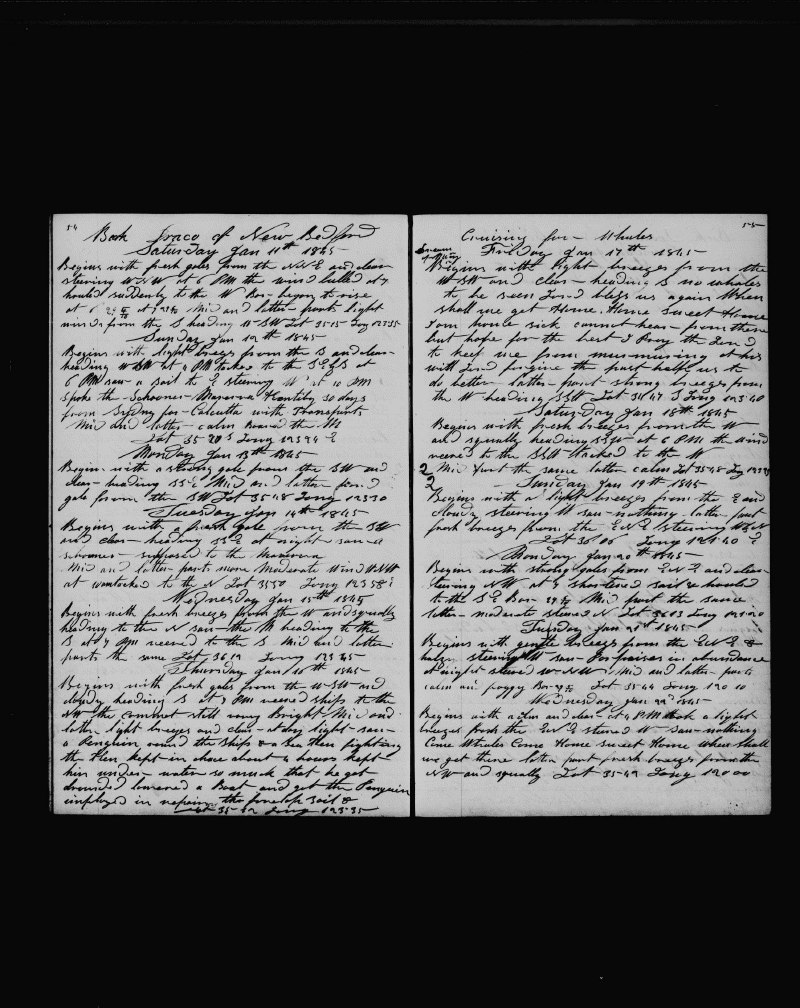 54
Bark Draco of New Bedford
Saturday Jan 11th 1845
Begins with fresh gales from the NNE and clear
steering WNW at 6 PM the wind lulled at 7
hauled suddenly to the W Bar began to rise
at 6 Mid and latter parts light
winds from the S heading WSW Lat 35 15 Long 123 35
Sunday Jan 12th 1845
Begins with light breezes from the S and clear
heading WSW at 4 PM tacked to the S E & S at
6 PM saw a sail to E steering W at 10 PM
spoke the Schooner 30 days
from Sydney for Calcutta with
Mid and latter calm the M
Lat 35 20 S Long 123 24 E
Monday Jan 13th 1845
Begins with a strong gale from the SW and
clear heading SSE Mid and latter
gale from the SW Lat 35 48 Long 123 30
Tuesday Jan 14th 1845
Begins with a fresh gale from the SW
and clear heading SSE at night saw a
schooner supposed to the
Mid and latter parts more Moderate Wind WNW
at to the N Lat 35 50 Long 123 58 E
Wednesday Jan 15th 1845
Begins with fresh breezes from the W and squally
heading to the N saw the M heading to the
S at 7 PM veered to the S Mid and latter
parts the same Lat 36 19 Long 123 45
Thursday Jan 16th 1845
Begins with fresh gales from the WSW and
cloudy heading S at 8 PM veered ships to the
NW the commet still very bright Mid and
latter light breezes and clear at day light saw
a Penguin round the ships & a sea then fighting
the then kept in chase about 4 hours kept
him under water so much that he got
drounded lowered a Boat and got the Penguin
imployd in repairing the foretop sail &
Lat 35 52 Long 123 35
55
Cruising for Whales
Friday Jan 17th 1845
Begins with light breezes from the
WSW and clear heading S no whales
to be seen Lord bless us again When
shall we get Home. Home Sweet Home
I am home sick cannot hear from there
but hope for the best I Pray the Lord
to keep me from murmuring at his
will Lord forgive the past help us to
do better latter part strong breezes from
the W heading SSW Lat 36 47 S Long 123 40
Saturday Jan 18th 1845
Begins with fresh breezes from the W
and squally heading SSW at 6 PM the wind
veered to the SSW tacked to the W
2 Mid part the same latter calm Lat 35 48 Long
2 Sunday Jan 19th 1845
Begins with a light breezes from the E and
cloudy steering W saw nothing latter part
fresh breezes from the ENE steering WBN
Lat 36 06 Long 121 40 E
Monday Jan 20th 1845
Begins with strong gales from ENE and clear
steering NW at 8 shortened sail & hauled
to the S E Bar Mid part the same
latter moderate steered N Lat 36 03 Long
Tuesday Jan 21st 1845
Begins with gentle breezes from the ENE &
hazy steering W saw Porpoises in abundance
at night steered WNW Mid and latter parts
calm and foggy Bar Lat 35 44 Long 120 10
Wednesday Jan 22d 1845
Begins with calm and clear at 4 PM took a light
breezes from the ENE steered W Saw nothing
Come Whales Come Home sweet Home when shall
we get there latter part fresh breezes from the
NW and squally Lat 35 49 Long 120 00